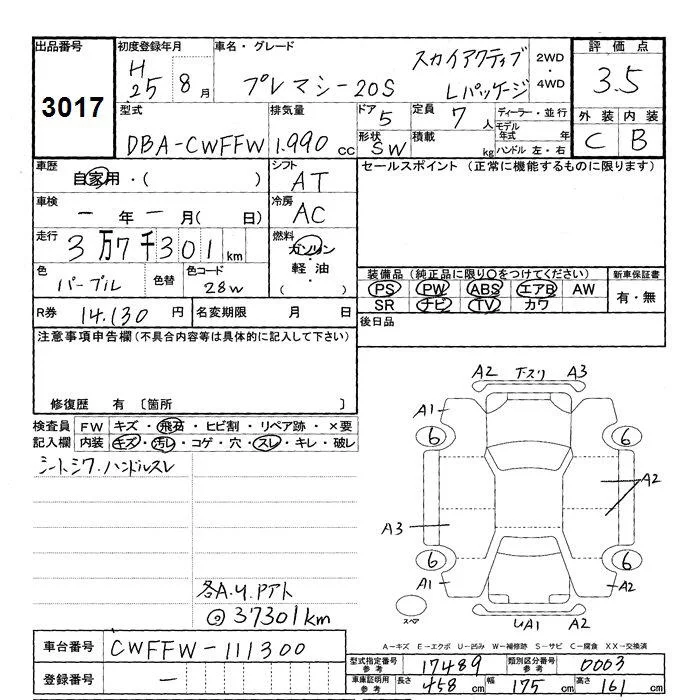 出品番号 初度登録年月 車名・グレード 評価点
3017 H25 8月 プレマシー20S スカイアクティブ Lパッケージ 2WD・4WD 3.5
型式 排気量 ドア 5 定員 7人 ディーラー・並行 外装 内装
DBA-CWFFW 1.990cc 形状 SW 積載 kg モデル年式 年 C B
ハンドル 左・右
車歴 シフト セールスポイント (正常に機能するものに限ります)
自家用・( ) AT
車検 冷房
一年一月( 日) AC
走行 燃料
3万7千301km ガソリン
色 色替 色コード ・軽油・
パープル 28W ( )
装備品(純正品に限り〇をつけてください) 新車保証書
PS PW ABS エアB AW 有・無
SR ナビ TV カワ
R券 14.130円 名変期限 月 日 後日品
注意事項申告欄(不具合内容等は具体的に記入して下さい)
修復歴 有 〔箇所 〕
検査員 FW キズ・飛石・ヒビ割・リペア跡・×要
記入欄 内装 キズ・汚レ・コゲ・穴・スレ・キレ・破レ
シートシワ.ハンドルスレ
各A.U.Pアト
◎37301km
A2 下スリ A3
A1
6 6
A2
A3
6 6
A1 A2
スペア UA1 A2
A-キズ E-エクボ U-凹み W-補修跡 S-サビ C-腐食 XX-交換済
車台番号 CWFFW-111300
型式指定番号 参考 17489 類別区分番号 参考 0003
登録番号 —
車庫証明用 参考 長さ 458cm 幅 175cm 高さ 161cm